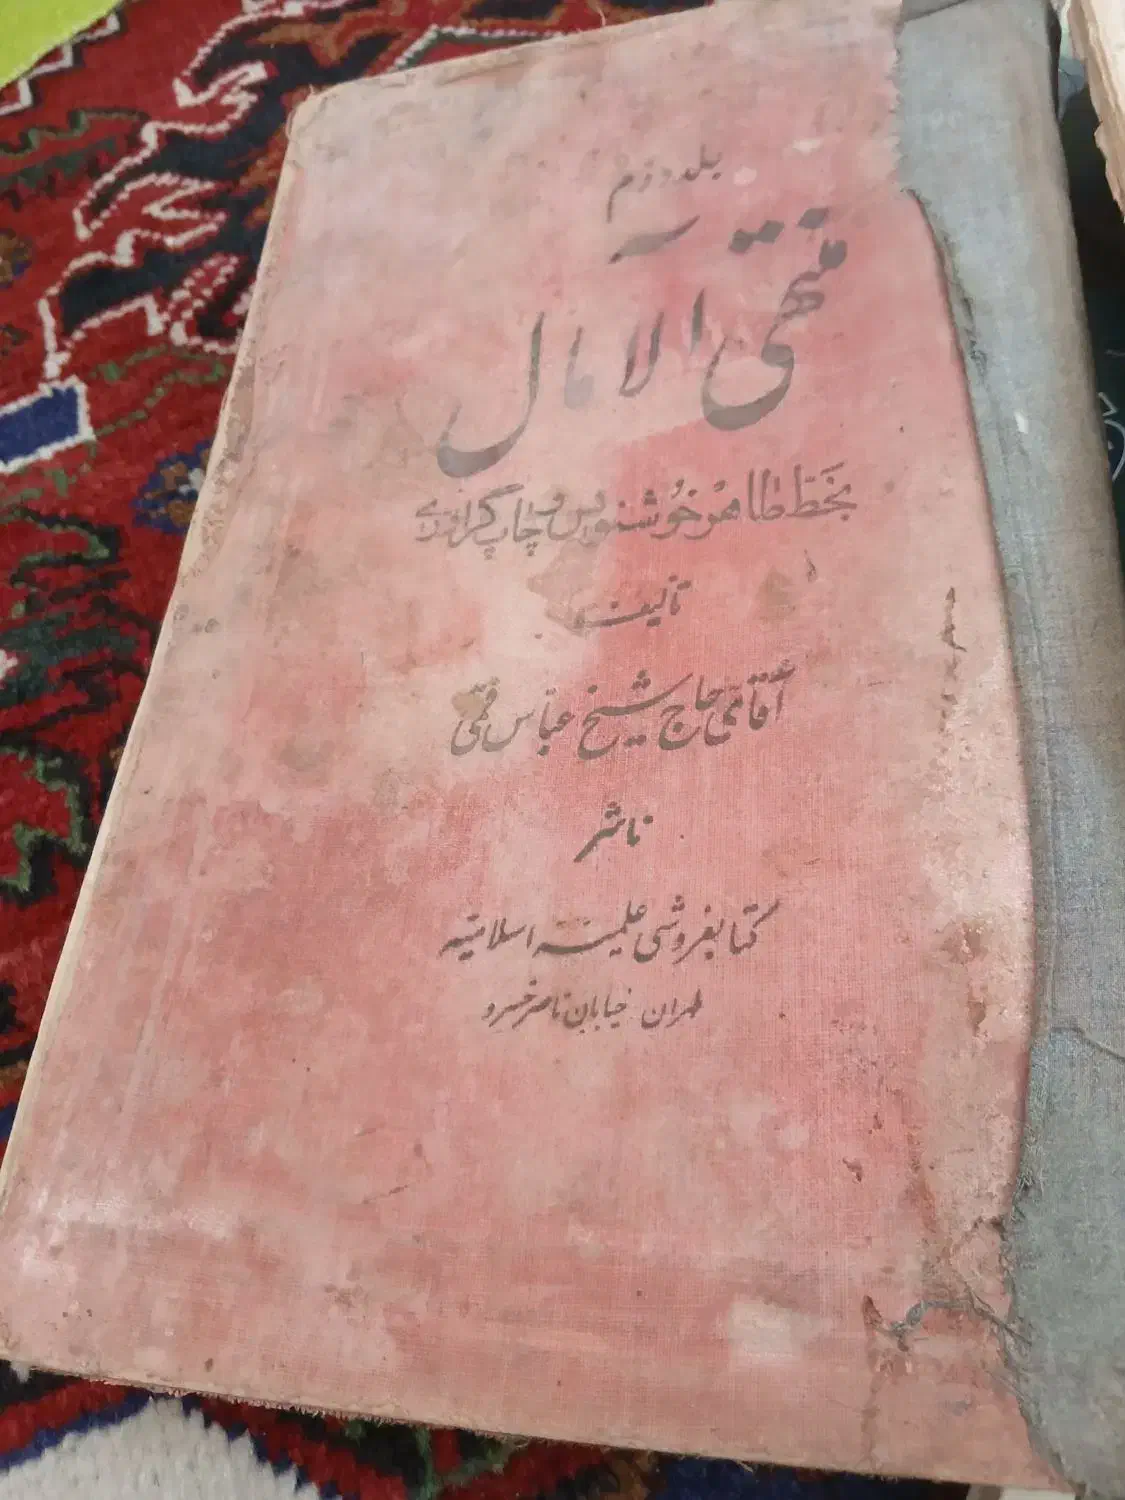 جلد دوم
منتهی الآمال
بخط طاهر خوشنویس و چاپ گراوری
تألیف
آقای حاج شیخ عباس قمی
ناشر
کتابفروشی علمیه اسلامیه
طهران خیابان ناصر خسرو